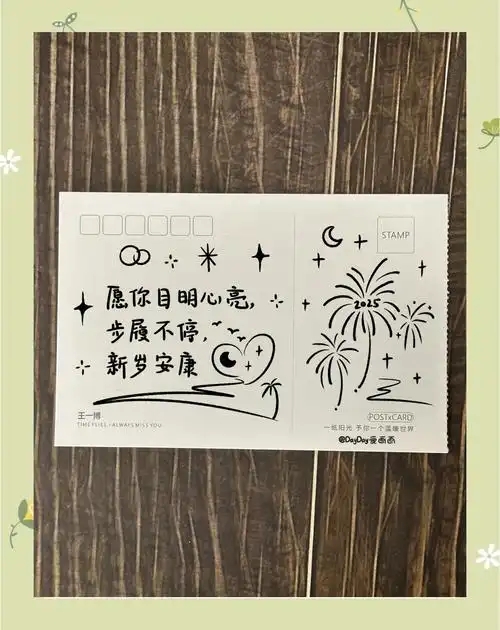 愿你目明心亮,
步履不停,
新岁安康
王一博
TIME FLIES, I ALWAYS MISS YOU
STAMP
2025
POSTxCARD
一纸阳光 予你一个温暖世界
@DayDay爱画画